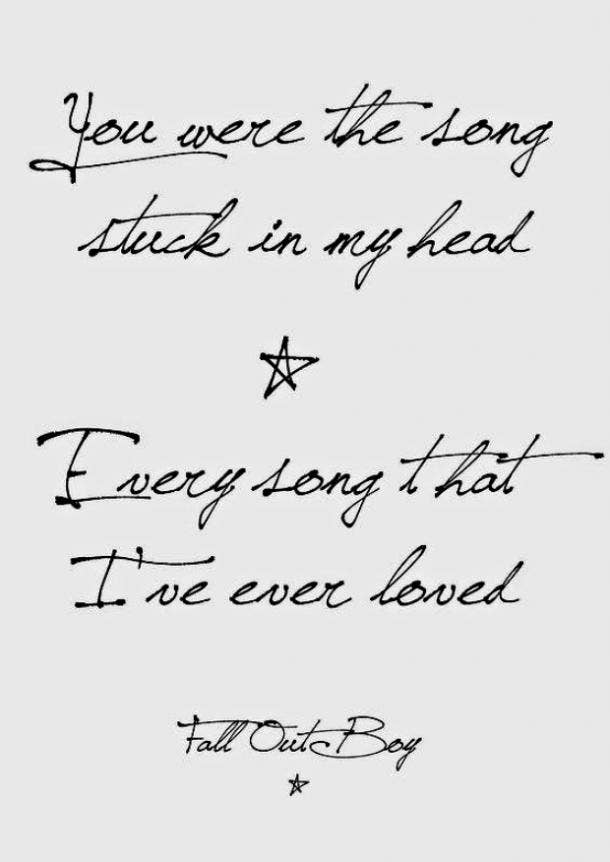 You were the song
stuck in my head
Every song that
I've ever loved
Fall Out Boy